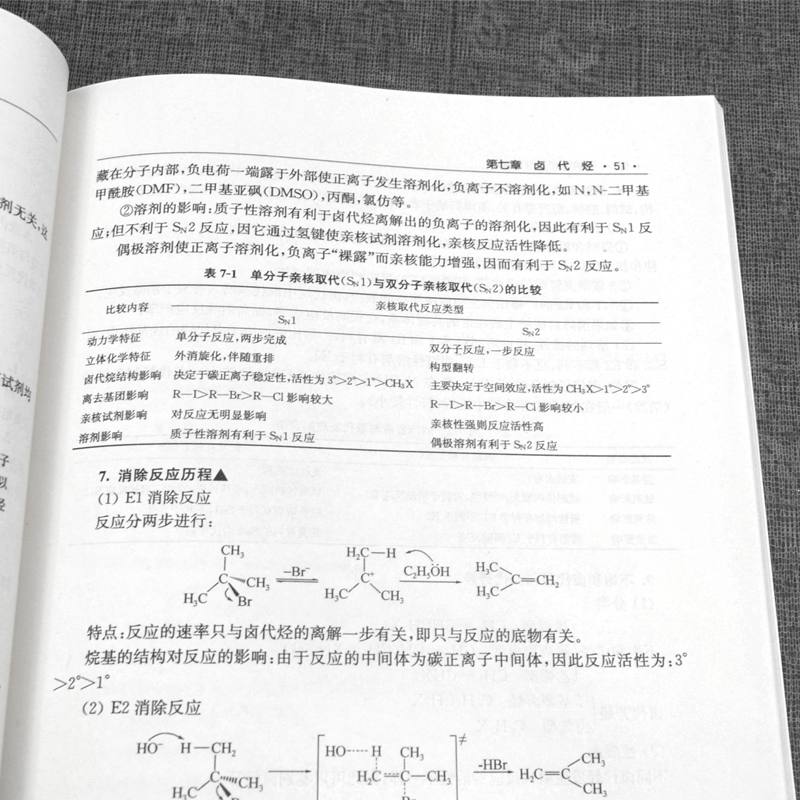 第七章 卤 代 烃 ·51·
藏在分子内部,负电荷一端露于外部使正离子发生溶剂化,负离子不溶剂化,如 N,N-二甲基
甲酰胺(DMF),二甲基亚砜(DMSO),丙酮,氯仿等。
②溶剂的影响:质子性溶剂有利于卤代烃离解出的负离子的溶剂化,因此有利于 SN1 反
应;但不利于 SN2 反应,因它通过氢键使亲核试剂溶剂化,亲核反应活性降低。
偶极溶剂使正离子溶剂化,负离子“裸露”而亲核能力增强,因而有利于 SN2 反应。
表 7-1 单分子亲核取代(SN1)与双分子亲核取代(SN2)的比较
比较内容 亲核取代反应类型
SN1 SN2
动力学特征 单分子反应,两步完成 双分子反应,一步反应
立体化学特征 外消旋化,伴随重排 构型翻转
卤代烷结构影响 决定于碳正离子稳定性,活性为 3°>2°>1°>CH3X 主要决定于空间效应,活性为 CH3X>1°>2°>3°
离去基团影响 R—I>R—Br>R—Cl 影响较大 R—I>R—Br>R—Cl 影响较小
亲核试剂影响 对反应无明显影响 亲核性强则反应活性高
溶剂影响 质子性溶剂有利于 SN1 反应 偶极溶剂有利于 SN2 反应
7. 消除反应历程▲
(1) E1 消除反应
反应分两步进行:
CH3 H2C—H H3C
C CH3 −Br− C+ C2H5ÖH C=CH2
H3C Br H3C CH3 H3C
特点:反应的速率只与卤代烃的离解一步有关,即只与反应的底物有关。
烷基的结构对反应的影响:由于反应的中间体为碳正离子中间体,因此反应活性为:3°
>2°>1°
(2) E2 消除反应
HO− H—CH2 HO---H CH3 ≠ CH3
C CH3 H2C C—CH3 -HBr H2C=C
H3C Br Br CH3
剂无关,这
试剂均
子
以